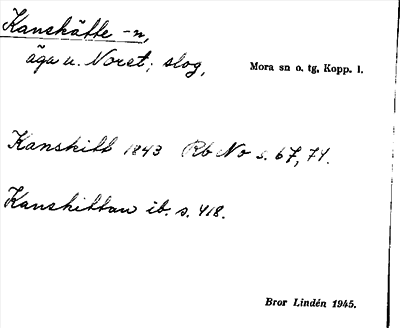 Kanskätte -n,
äga u. Noret; slog,
Mora sn o. tg, Kopp. l.
Kanskitt 1843 Rb No s. 67, 71.
Kanskittan ib. s. 418.
Bror Lindén 1945.